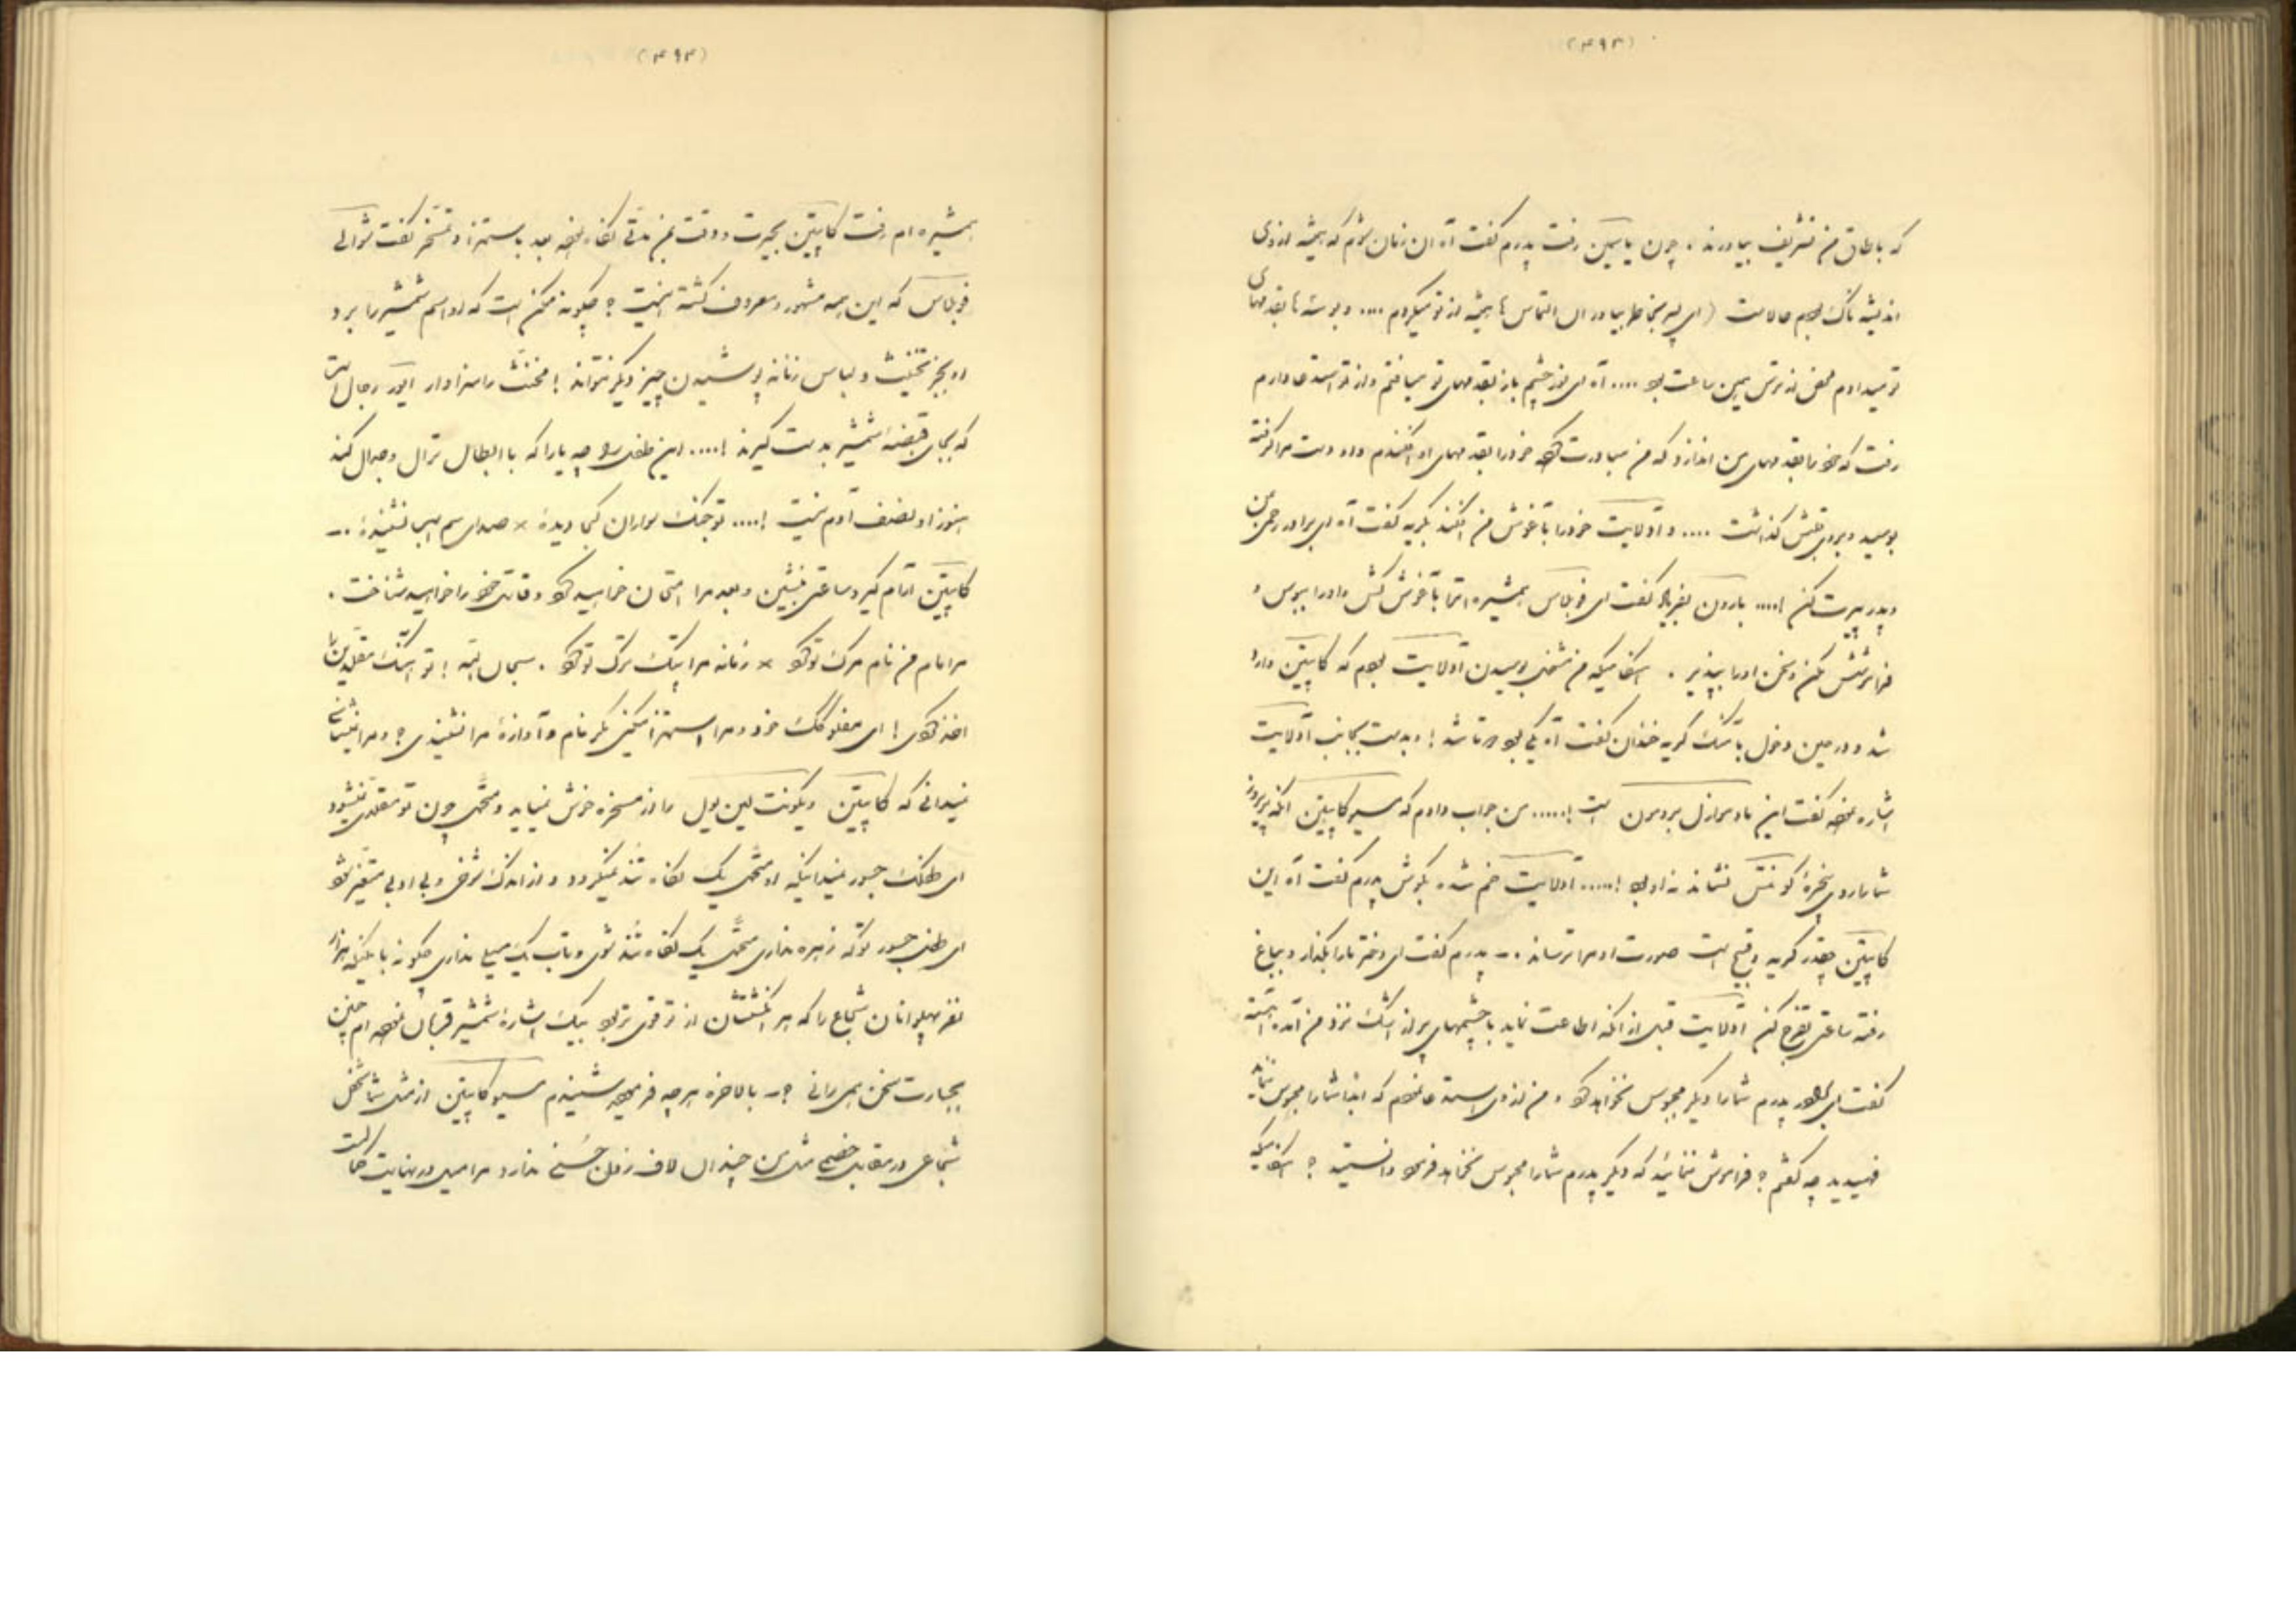 (۴۹۳)
که باطاق من تشریف بیاورند . چون یاسمین رفت پدرم گفت آه ان زمان شوم که همیشه از وی
اندیشه ناک بودم حالاست (ای پسر بخاطر بیاور ان التماس ها همیشه از تو میکردم .... و بوسه ها بقدمهای
تو میدادم محض از ترس همین ساعت بود .... آه ای نور چشم باز بقدمهای تو میافتم و از تو استدعا دارم
رفت که خود را بقدمهای من اندازد که من مبادرت کرده خود را بقدمهای او افکندم و او دست مرا گرفته
بوسید و بروی قلبش گذاشت .... و آدلایت خود را بآغوش من افکند بگریه گفت آه ای برادر رحمی بمن
و پدر پیرت کن !.... بارون بفریاد گفت ای فوبلاس همشیره ات را بآغوش کش و او را ببوس و
فراموشش مکن و سخن او را بپذیر . هنگامیکه من مشغول بوسیدن آدلایت بودم که کاپیتن وارد
شد و در حین دخول با تنگ گریه خندان گفت آه کی بود مرتا شد ! و بدست بجانب آدلایت
اشاره نموده گفت این مادموازل برومون است !..... من جواب دادم که مسیو کاپیتن آنکه پریروز
شما را روی پنجره کونتس نشاند نه او بود !..... آدلایت خم شده بگوش پدرم گفت آه این
کاپیتن چقدر کریه و قبیح است صورت او مرا ترساند .ـ پدرم گفت ای دختر ما را بگذار و بباغ
رفته ساعتی تفرج کن آدلایت قبل از آنکه اطاعت نماید با چشمهای پر از اشک نزد من آمده آهسته
گفت ای برادر پدرم شما را دیگر محبوس نخواهد کرد و من از وی استدعا نمودم که ابدا شما را محبوس ننماید
فهمیدید چه گفتم ؟ فراموش ننمائید که دیگر پدرم شما را محبوس نخواهد فرمود دانستید ؟ هنگامیکه
(۴۹۴)
همشیره ام رفت کاپیتن بحیرت و دقت بمن مدتی نگاه نموده بعد باستهزا و تمسخر گفت شوالیه
فوبلاس که این همه مشهور و معروف گشته اینست ؟ چگونه ممکن است که او اسم شمشیر را برد
او بجز تخنیث و لباس زنانه پوشیدن چیز دیگر نتواند ! مخنث را سزاوار امور رجال است
که بجای قبضه شمشیر بدست گیرند !.... این طفل ساده چه یارا که با ابطال نزال و جدال کند
هنوز او نصف آدم نیست !.... تو جنگ سواران کجا دیدهٔ × صدای سم اسبها نشنیدهٔ .ـ
کاپیتن آرام گیر و ساعتی بنشین و بعد مرا امتحان خواهید کرد و قاتل خود را خواهید شناخت .
مرا مام من نام مرگ تو کرد × زمانه مرا پتک ترگ تو کرد . سبحان الله ! تو هتک مقلدین را
اخذ کردی ! ای مفلوکک خرد و مرا استهزا میکنی مگر نام و آوازهٔ مرا نشنیدی ؟ و مرا نمیشناسی
نمیدانی که کاپیتن ویکونت لین یول را از مسخره خوش نمیاید و متحمل چون تو مقلدی نمیشود
ای طفلک جسور نمیدانیکه او متحمل یک نگاه تند نمیگردد و از اندک شوخی و بی ادبی متغیر شود
ای طفل جسور توکه زهره نداری متحمل یک نگاه تند شوی و تاب یک سیلی نداری چگونه با من که هزار
نفر پهلوانان شجاع را که هر انگشتشان از تو قوی تر بود بیک اشارهٔ شمشیر قربان نموده ام چنین
بجسارت سخن همی رانی ؟ـ بالاخره هر چه فرمودید شنیدم مسیو کاپیتن از مثل شما شخص
شجاعی در مقابل خصمی مثل من چندان لاف زدن حسنی ندارد مرا میل در نهایت حالت